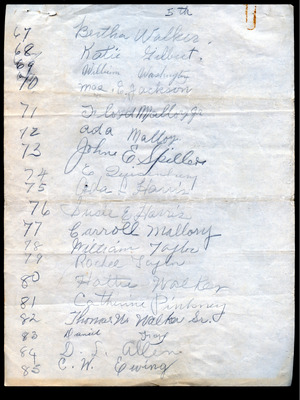 5th
67 Bertha Walker
68 Katie Gilbert
69 William Washington
70 Mae E. Jackson
71 Floyd Mallory Jr
72 Ada Mallory
73 John E Spillers
74 E.
75 Ada L Harris
76 Susie E Harris
77 Carroll Mallory
78 William Taylor
79 Rachel Taylor
80 Hattie Walker
81 Catherine Pinkney
82 Thomas W. Walker Sr.
83 Daniel Tracy
84 D. J. Allen
85 C. W. Ewing